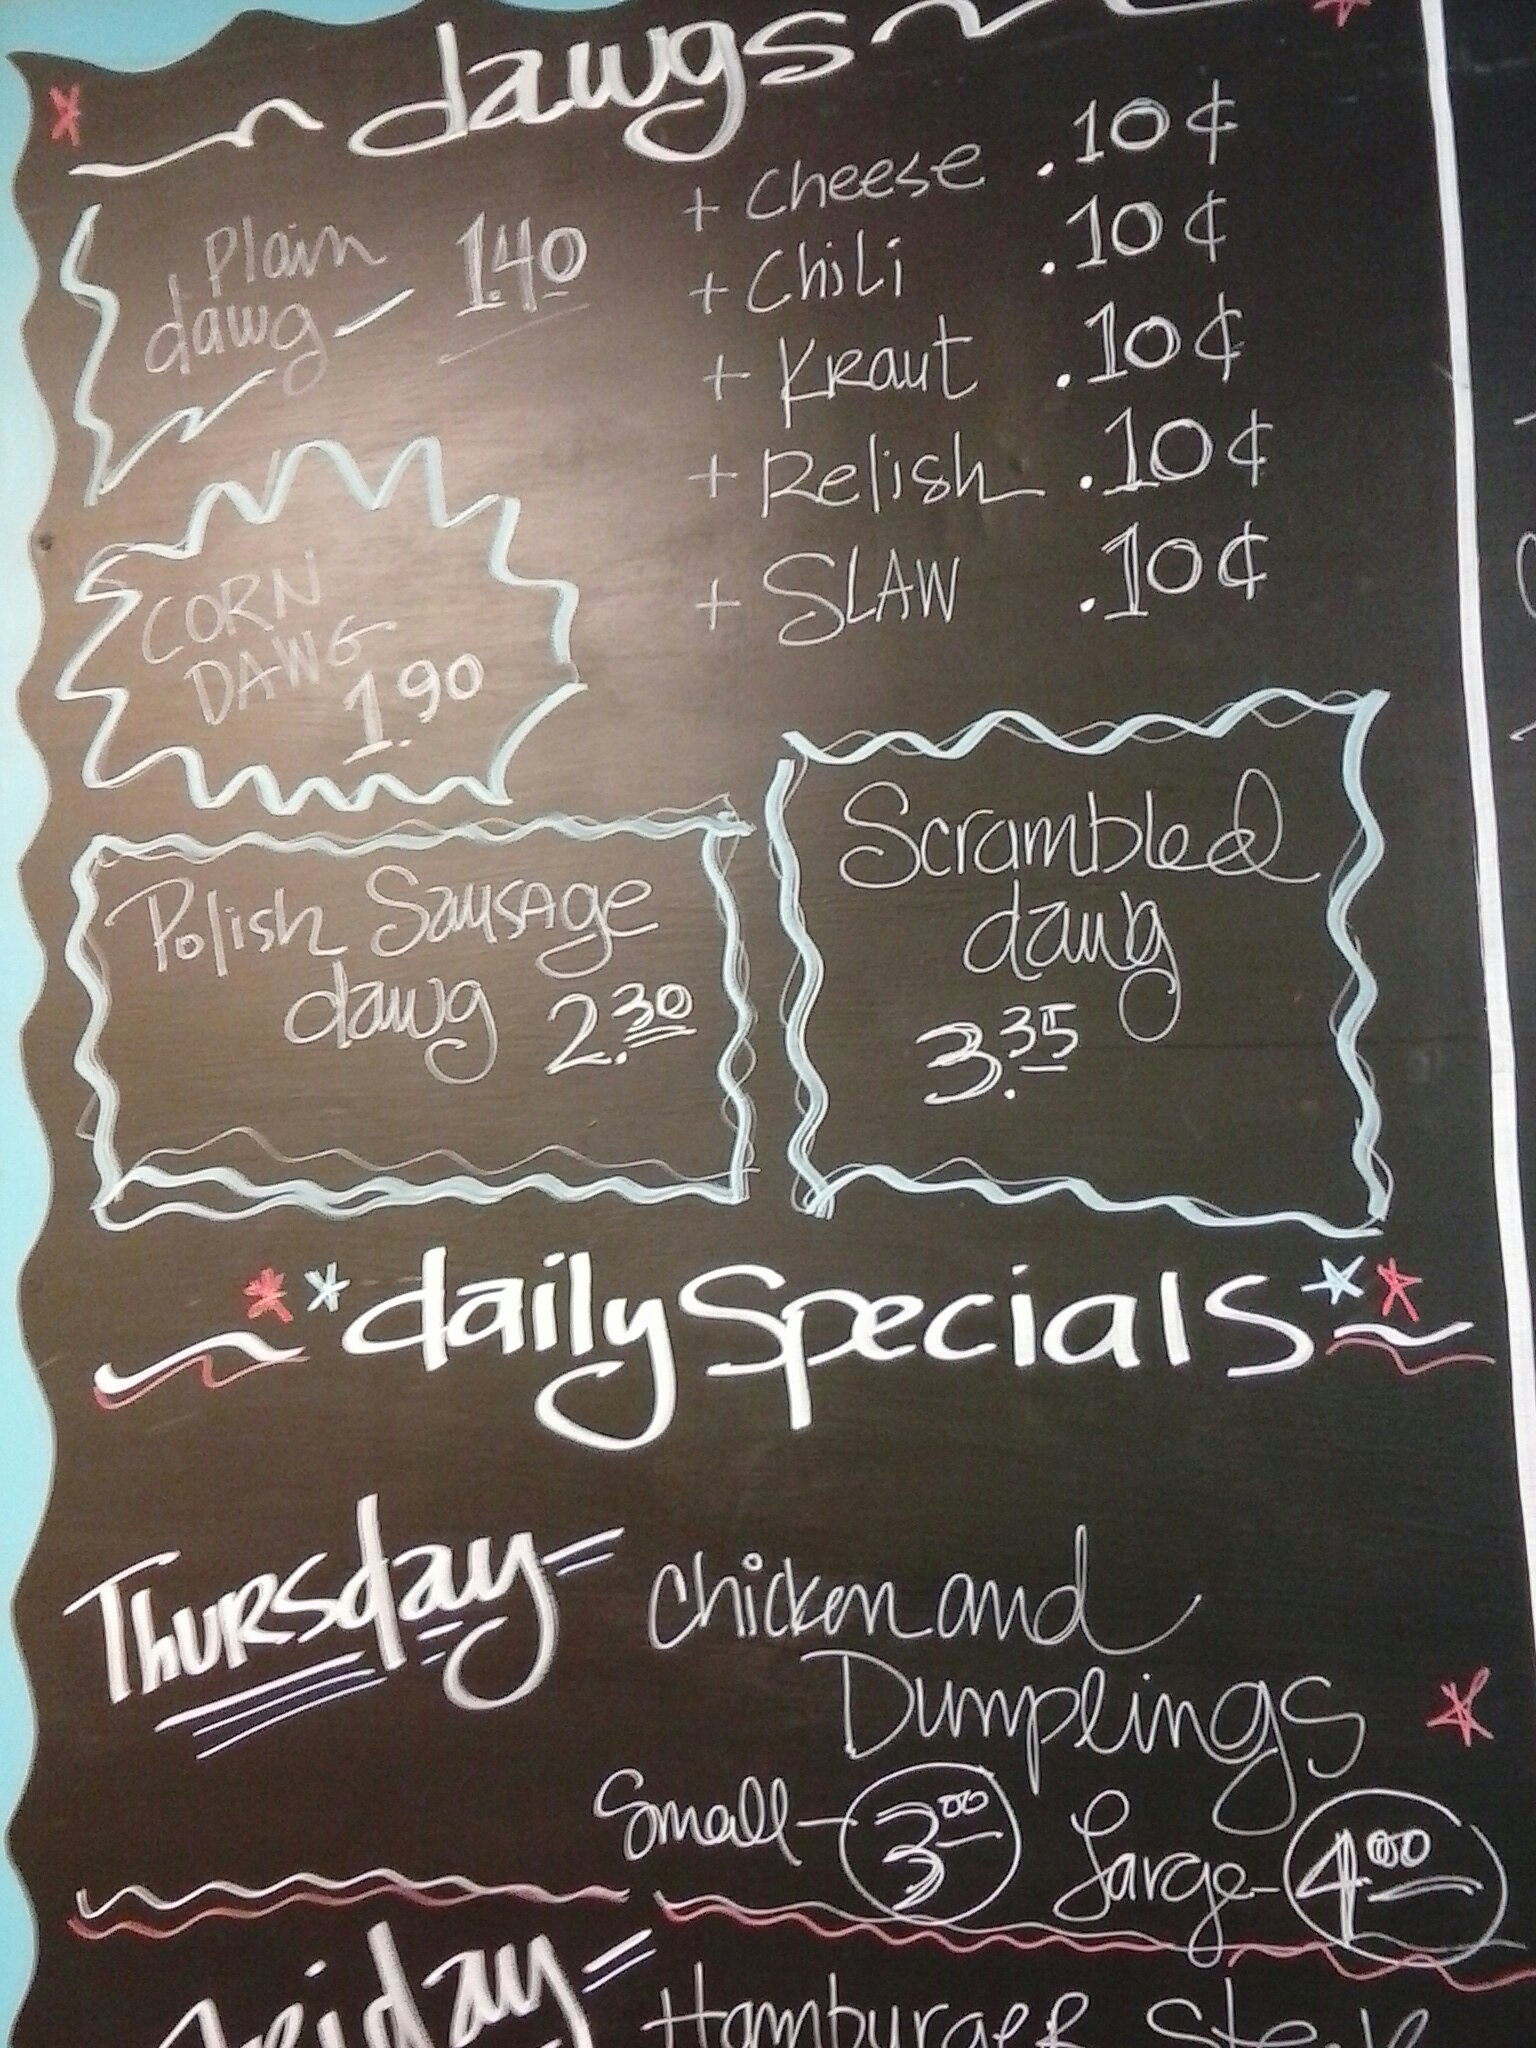 dawgs
Plain
dawg — 1.40
+ Cheese .10¢
+ Chili .10¢
+ Kraut .10¢
+ Relish .10¢
+ SLAW .10¢
CORN
DAWG
1.90
Polish Sausage
dawg 2.30
Scrambled
dawg
3.35
daily Specials
Thursday - Chicken and
Dumplings
Small - 3.00 Large - 4.00
Friday - Hamburger Steak